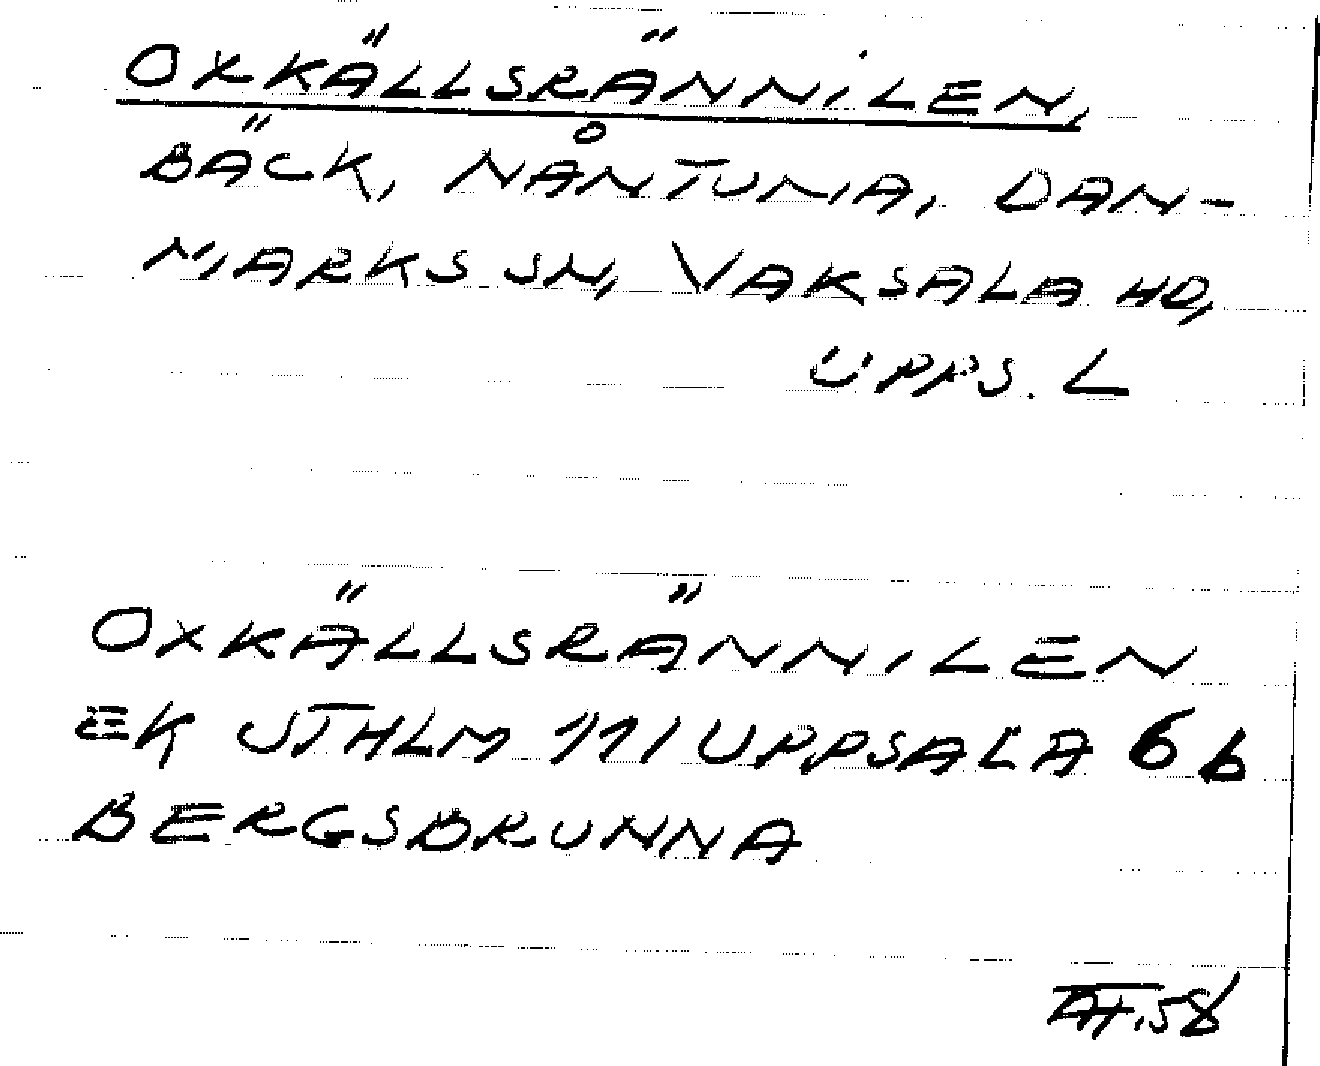 OXKÄLLSRÄNNILEN,
BÄCK, NÅNTUNA, DAN-
MARKS SN, VAKSALA HD,
UPPS. L
OXKÄLLSRÄNNILEN
EK STHLM 111 UPPSALA 6b
BERGSBRUNNA